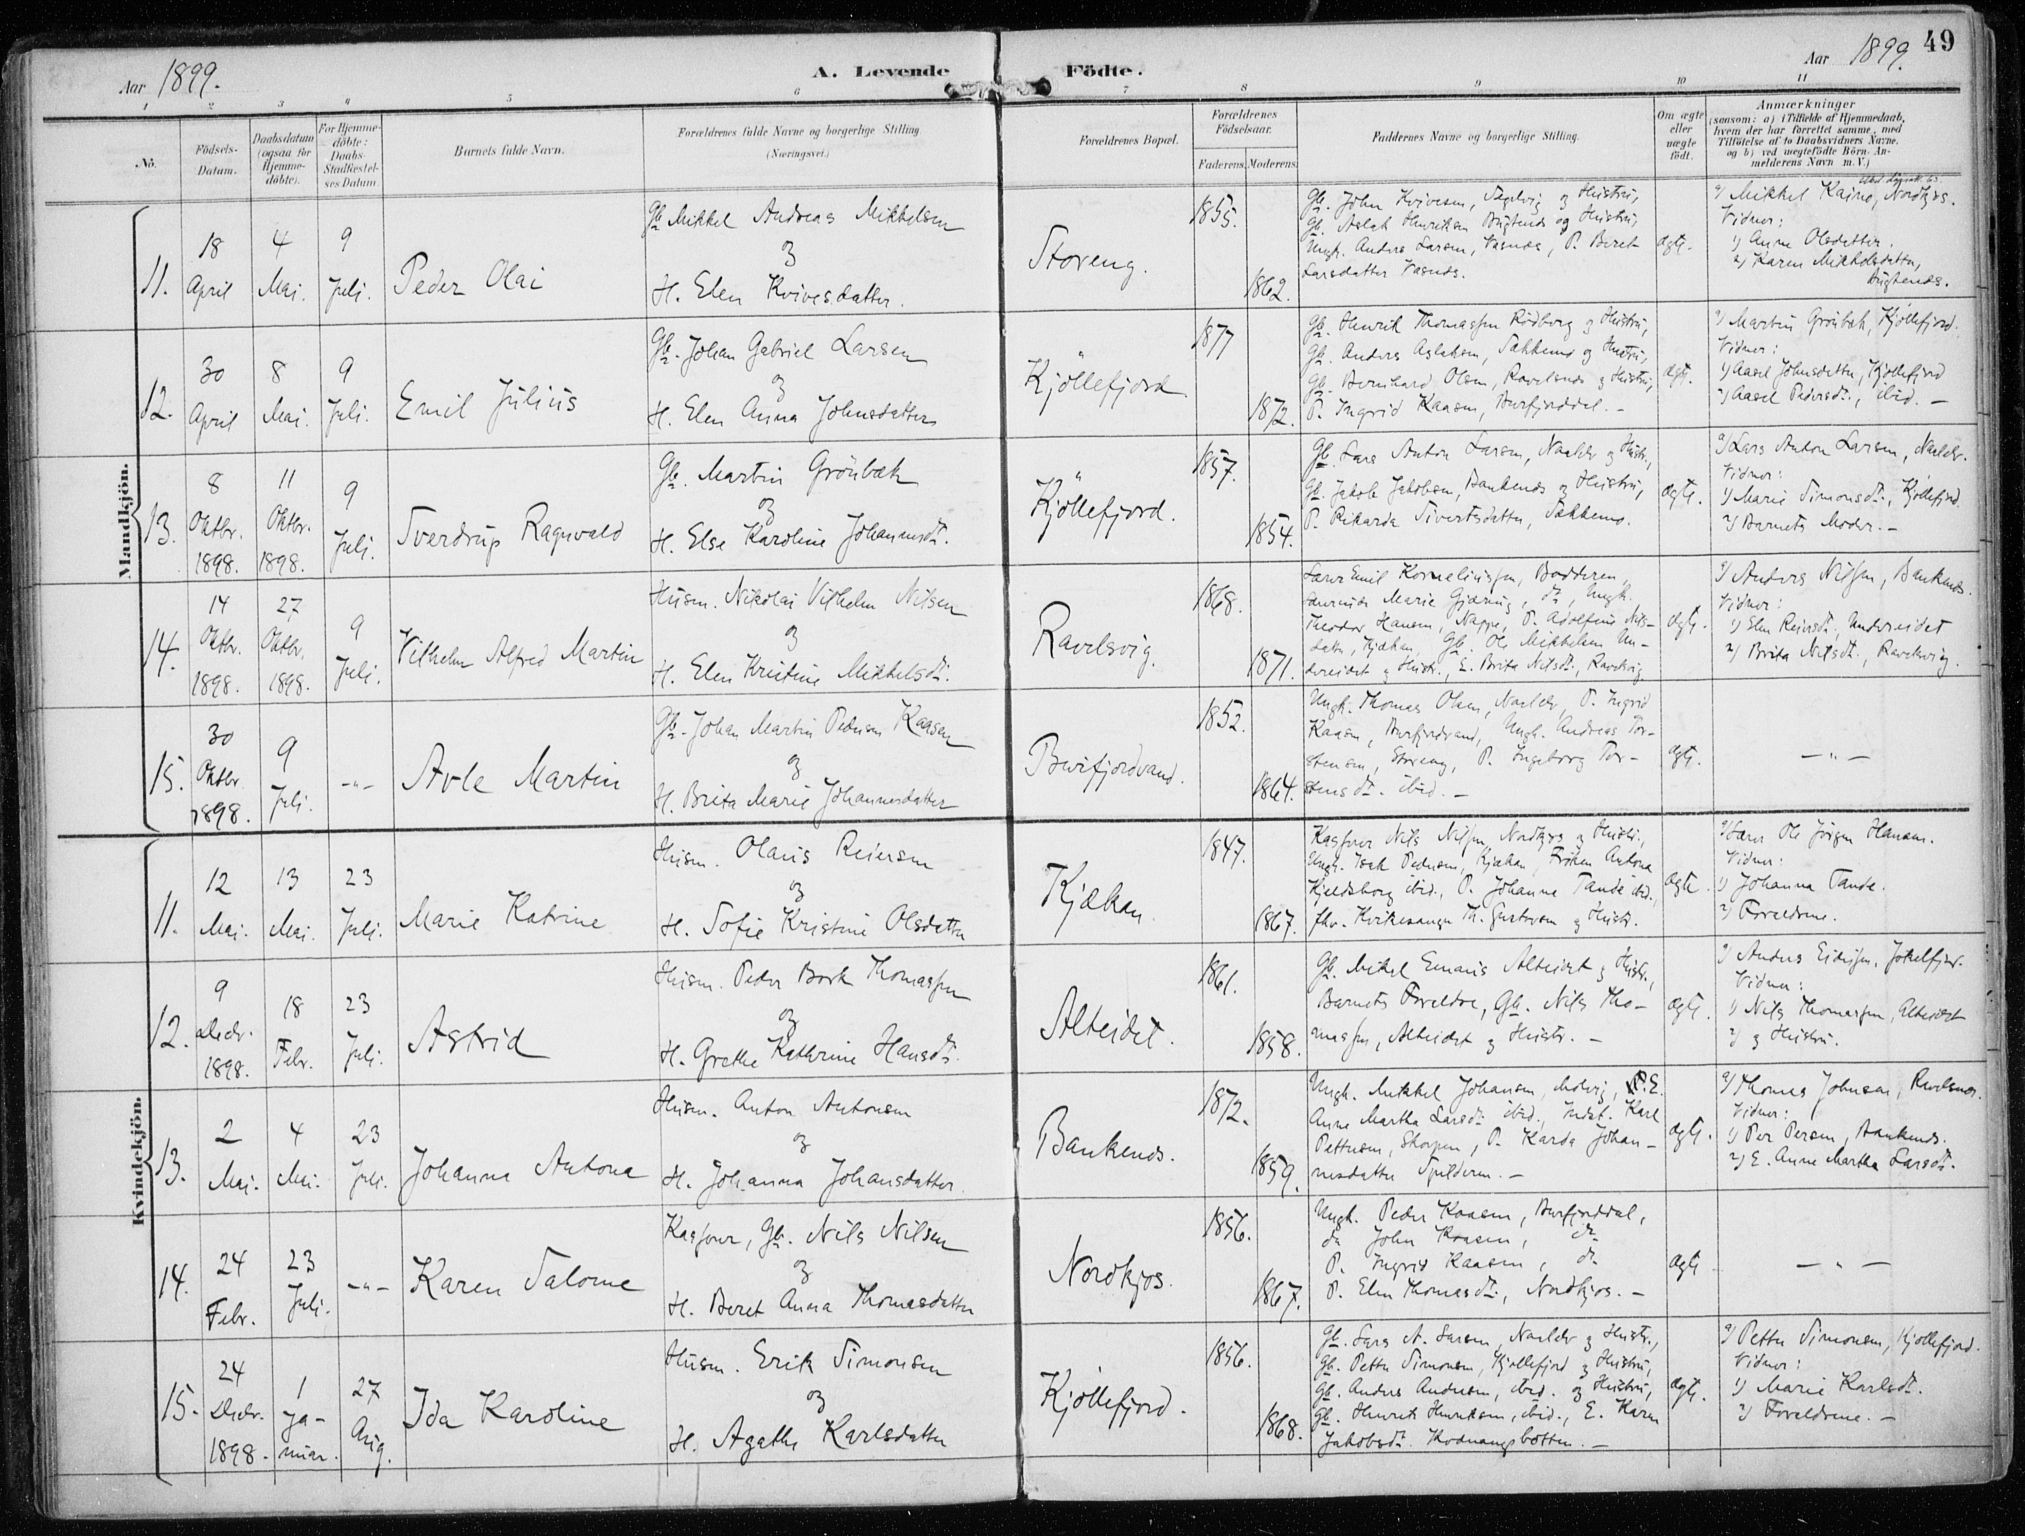 Aar 1899.
A. Levende Födte.
Aar 1899.
49
1 2 3 4 5 6 7 8 9 10 11
No.
Födsels-Datum.
Daabsdatum (ogsaa for Hjemmedöbte).
For Hjemmedöbte: Daabs-Stadfæstelses Datum
Barnets fulde Navn.
Forældrenes fulde Navne og borgerlige Stilling.
(Næringsvei.)
Forældrenes Bopæl.
Forældrenes Födselsaar.
Faderens. Moderens.
Faddernes Navne og borgerlige Stilling.
Om ægte eller uægte födt.
Anmærkninger
(saasom: a) i Tilfælde af Hjemmedaab, hvem der har forrettet samme, med Tilföielse af to Daabsvidners Navne, og b) ved uægtefödte Börn Anmelderens Navn m. V.)
Mandkjön.
11.
18 April
4 Mai.
9 Juli.
Peder Olai
Gb. Mikkel Andreas Mikkelsen
og
H. Elen Kvivesdatter.
Storeng.
1855.
1862.
Gb. John Kvivesen, og Hustru,
Gb. Aslak Henriksen og Hustru,
Ungk. Anders Larsen, Vasnæs, P. Beret
Larsdatter Vasnæs.
ægte.
a) Mikkel Kaino, Nordkjos.
Vidner:
1) Anne Olsdatter.
2) Karen Mikkelsdatter,
12.
30 April
8 Mai.
9 Juli.
Emil Julius
Gb. Johan Gabriel Larsen
og
H. Elen Anna Johnsdatter
Kjöllefjord
1877
1872.
Gb. Henrik Thomassen Rödberg og Hustru,
Gb. Anders Aslaksen, Sakkemo og Hustru,
Gb. Bernhard Olsen, Ravelsnæs og Hustru,
P. Ingrid Kaasen, Burfjorddal. —
ægte.
a) Martin Grönbæk, Kjöllefjord.
Vidner:
1) Aasel Johnsdatter, Kjöllefjord
2) Aasel Pedersdt., ibid. —
13.
8 Oktbr. 1898.
11 Oktbr. 1898.
9 Juli.
Sverdrup Ragnvald
Gb. Martin Grönbæk
og
H. Else Karoline Johannesdt.
Kjöllefjord.
1857.
1854.
Gb. Lars Anton Larsen, og Hustru,
Gb. Jakob Jakobsen, Bankenæs og Hustru,
P. Rikarda Sivertsdatter, Sakkemo.
ægte.
a) Lars Anton Larsen,
Vidner:
1) Marie Simonsdt., Kjöllefjord
2) Barnets Moder. —
14.
14 Oktbr. 1898.
27 Oktbr. 1898.
9 Juli.
Vilhelm Alfred Martin
Husm. Nikolai Vilhelm Nilsen
og
H. Elen Kristine Mikkelsdt.
Ravelsvig.
1868.
1871.
Lærer Emil Korneliussen, Badderen,
Marie Gjæring, do, Ungk.
Theodor Hansen, P. Adolfine Nils-
datr, Kjækan, Gb. Ole Mikkelsen Un-
dereidet og Hustr., E. Brita Nilsdt., Ravelsvig
ægte.
a) Anders Nilsen, Bankenæs.
Vidner:
1) Elen Reiersdt., Undereidet
2) Brita Nilsdt., Ravelsvig.
15.
30 Oktbr 1898.
9 Juli.
-"-
Avle Martin
Gb. Johan Martin Pedersen Kaasen
og
H. Brita Marie Johannesdatter
Burfjordvand.
1852.
1864.
Ungk. Thomas Olsen, P. Ingrid
Kaasen, Burfjordvand, Ungk. Andreas Tor-
stensen, Storeng, P. Ingeborg Tor-
stensdt. ibid. —
ægte.
— " —
Kvindekjön.
11.
12 Mai.
13 Mai.
23 Juli.
Marie Katrine
Husm. Olaus Reiersen
og
H. Sofie Kristine Olsdatter
Kjækan.
1847.
1867.
Nils Nilsen Nordkjos og Hustru,
Ungk. Isak Pedersen, Kjækan, Fröken Antona
Kjeldsborg ibid., P. Johanna Tande ibid.,
Th. Gustavsen og Hustr.
ægte.
a) Lærer Ole Jörgen Hansen.
Vidner:
1) Johanna Tande.
2) Forældrene.
12.
9 Decbr. 1898.
18 Febr.
23 Juli.
Astrid
Husm. Peder Bork Thomassen
og
H. Grethe Kathrine Hansdt.
Alteidet.
1861.
1858.
Gb. Mikel Alteidet og Hustr.,
Barnets Foreldre, Gb. Nils Tho-
massen, Alteidet og Hustr. —
ægte.
a) Anders Eidissen, Jökelfjor.
Vidner:
1) Nils Thomassen, Alteidet
2) og Hustru.
13.
2 Mai.
4 Mai.
23 Juli.
Johanna Antona
Husm. Anton Antonsen
og
H. Johanna Johansdatter.
Bankenæs.
1872.
1859.
Ungk. Mikkel Johansen, E.
Anne Martha Larsdt. ibid., Karl
Pettersen, Skorpen, P. Karda Johan-
nesdatter Spildern. —
ægte.
a) Thomas Johnsen, Ravelsnæs.
Vidner:
1) Per Persen, Bankenæs.
2) E. Anne Martha Larsdt.
14.
24 Febr.
23 Juli.
-"-
Karen Salome
Gb. Nils Nilsen
og
H. Beret Anna Thomasdatter
Nordkjos.
1856.
1867.
Ungk. Peder Kaasen, Burfjorddal,
do John Kaasen, do
P. Ingrid Kaasen, do
P. Elen Thomasdt., Nordkjos. —
ægte
— " —
15.
24 Decbr. 1898.
1 Januar.
27 Aug.
Ida Karoline
Husm. Erik Simonsen
og
H. Agathe Karlsdatter
Kjöllefjord.
1856.
1868.
Gb. Lars A. Larsen, og Hustr.,
Gb. Petter Simonsen, Kjöllefjord og Hustru,
Gb. Anders Andersen, ibid. og Hustru,
Gb. Henrik Henriksen, ibid., E. Karen
Jakobsdt. Kvænangsbotten. —
ægte.
a) Petter Simonsen, Kjöllefjord.
Vidner:
1) Marie Karlsdt.
2) Forældrene. —